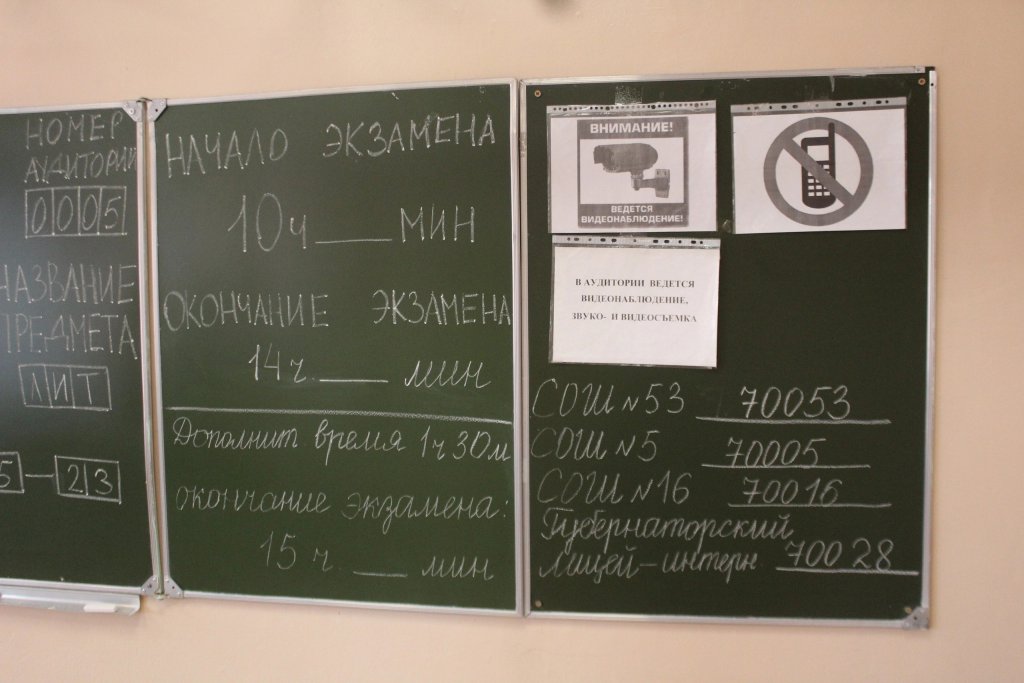 НОМЕР
АУДИТОРИИ
0005
НАЗВАНИЕ
ПРЕДМЕТА
ЛИТ
5 — 23
НАЧАЛО ЭКЗАМЕНА
10 ч ____ МИН
ОКОНЧАНИЕ ЭКЗАМЕНА
14 ч. ____ мин
Дополнит время 1 ч 30 м
окончание экзамена:
15 ч. ____ мин
ВНИМАНИЕ!
ВЕДЕТСЯ
ВИДЕОНАБЛЮДЕНИЕ!
В АУДИТОРИИ ВЕДЕТСЯ
ВИДЕОНАБЛЮДЕНИЕ,
ЗВУКО- И ВИДЕОСЪЕМКА
СОШ №53 70053
СОШ №5 70005
СОШ №16 70016
Губернаторский
лицей-интерн 70028